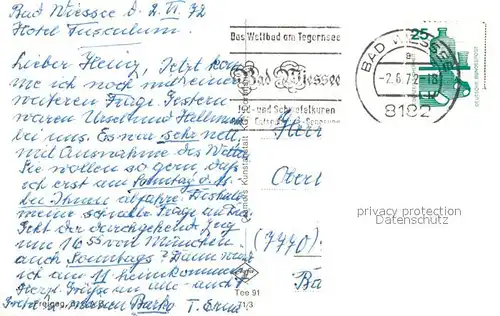 Bad Wiessee d. 2. VI. 72
Hotel Tusculum.
Lieber Heinz, Jetzt kom
me ich noch mit einer
weiteren Frage. Gestern
waren Ursel und Hellmut
bei uns. Es war sehr nett
mit Ausnahme des Wetters
Sie wollen so gern, daß
ich erst am Sonntag d. 11.
bei Ihnen abfahre. Deshalb
meine schnelle Frage an Dich.
Geht der durchgehende Zug
um 16 55 von München
auch Sonntags? Dann würde
ich am 11 heimkommen
Herzl. Grüße an alle - auch
T. Erna
Das Weltbad am Tegernsee
Bad Wiessee
Jod- und Schwefelkuren
BAD WIESSEE
a
-2.6.72-18
8182
25
Herr
Oberl
(7770)
Tee 91
71/3
privacy protection
Datenschutz